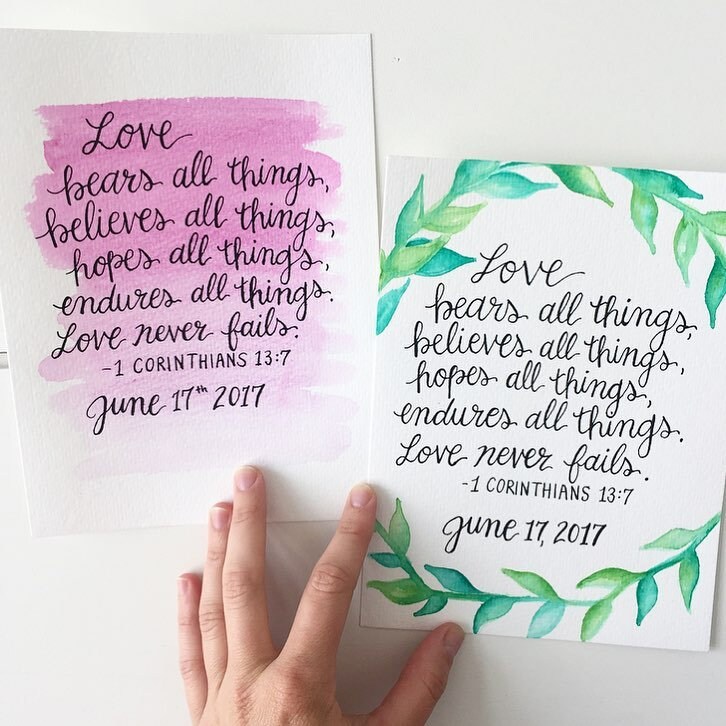 Love
bears all things,
believes all things,
hopes all things,
endures all things.
Love never fails.
-1 CORINTHIANS 13:7
June 17th 2017
Love
bears all things,
believes all things,
hopes all things,
endures all things.
Love never fails.
-1 CORINTHIANS 13:7
June 17, 2017